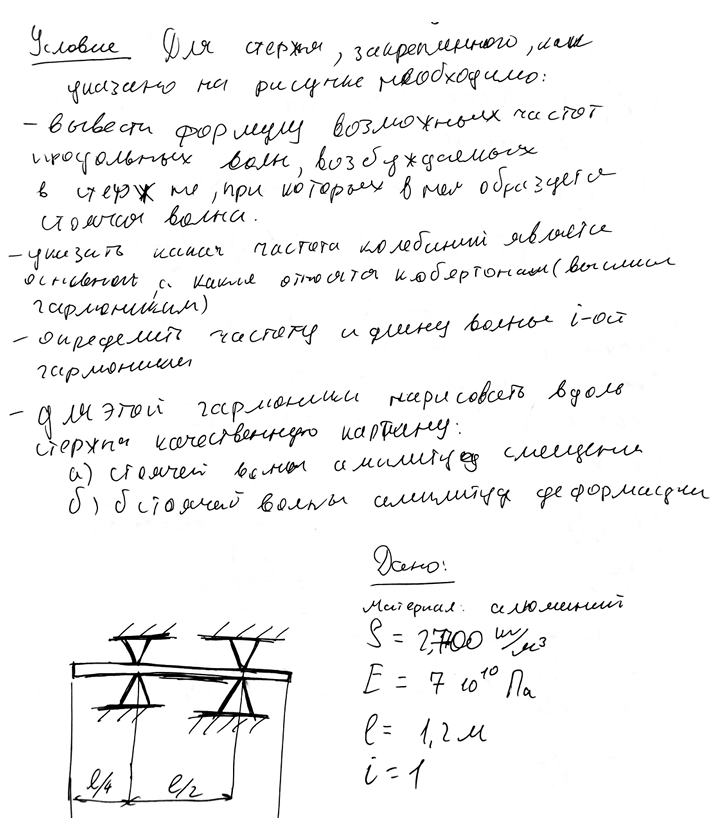 Условие Для стержня, закреплённого, как
указано на рисунке необходимо:
- вывести формулу возможных частот
продольных волн, возбуждаемых
в стержне, при которых в нем образуется
стоячая волна.
- указать какая частота колебаний является
основной, а какие относятся к обертонам (высшим
гармоникам)
- определить частоту и длину волны i-ой
гармоники
- для этой гармоники нарисовать вдоль
стержня качественную картину:
а) стоячей волны амплитуд смещения
б) стоячей волны амплитуд деформации
Дано:
Материал: алюминий
ρ = 2,700 кг/м³
E = 7 10¹⁰ Па
l = 1,2 м
i = 1
l/4 l/2